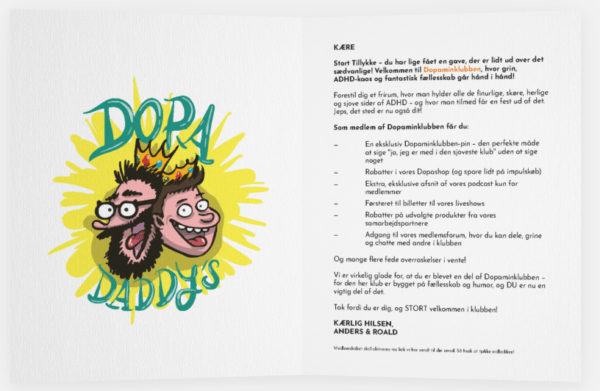 DOPA
DADDY'S
KÆRE
Stort Tillykke – du har lige fået en gave, der er lidt ud over det
sædvanlige! Velkommen til Dopaminklubben, hvor grin,
ADHD-kaos og fantastisk fællesskab går hånd i hånd!
Forestil dig et frirum, hvor man hylder alle de finurlige, skøre, herlige
og sjove sider af ADHD – og hvor man tilmed får en fest ud af det.
Jeps, det sted er nu også dit!
Som medlem af Dopaminklubben får du:
– En eksklusiv Dopaminklubben-pin – den perfekte måde
at sige "ja, jeg er med i den sjoveste klub" uden at sige
noget
– Rabatter i vores Dopashop (og spare lidt på impulskøb)
– Ekstra, eksklusive afsnit af vores podcast kun for
medlemmer
– Førsteret til billetter til vores liveshows
– Rabatter på udvalgte produkter fra vores
samarbejdspartnere
– Adgang til vores medlemsforum, hvor du kan dele, grine
og chatte med andre i klubben
Og mange flere fede overraskelser i vente!
Vi er virkelig glade for, at du er blevet en del af Dopaminklubben –
for den her klub er bygget på fællesskab og humor, og DU er nu en
vigtig del af det.
Tak fordi du er dig, og STORT velkommen i klubben!
KÆRLIG HILSEN,
ANDERS & ROALD
Medlemskabet aktiveres via link vi har sendt til din email. Så husk at tjekke indbakken!